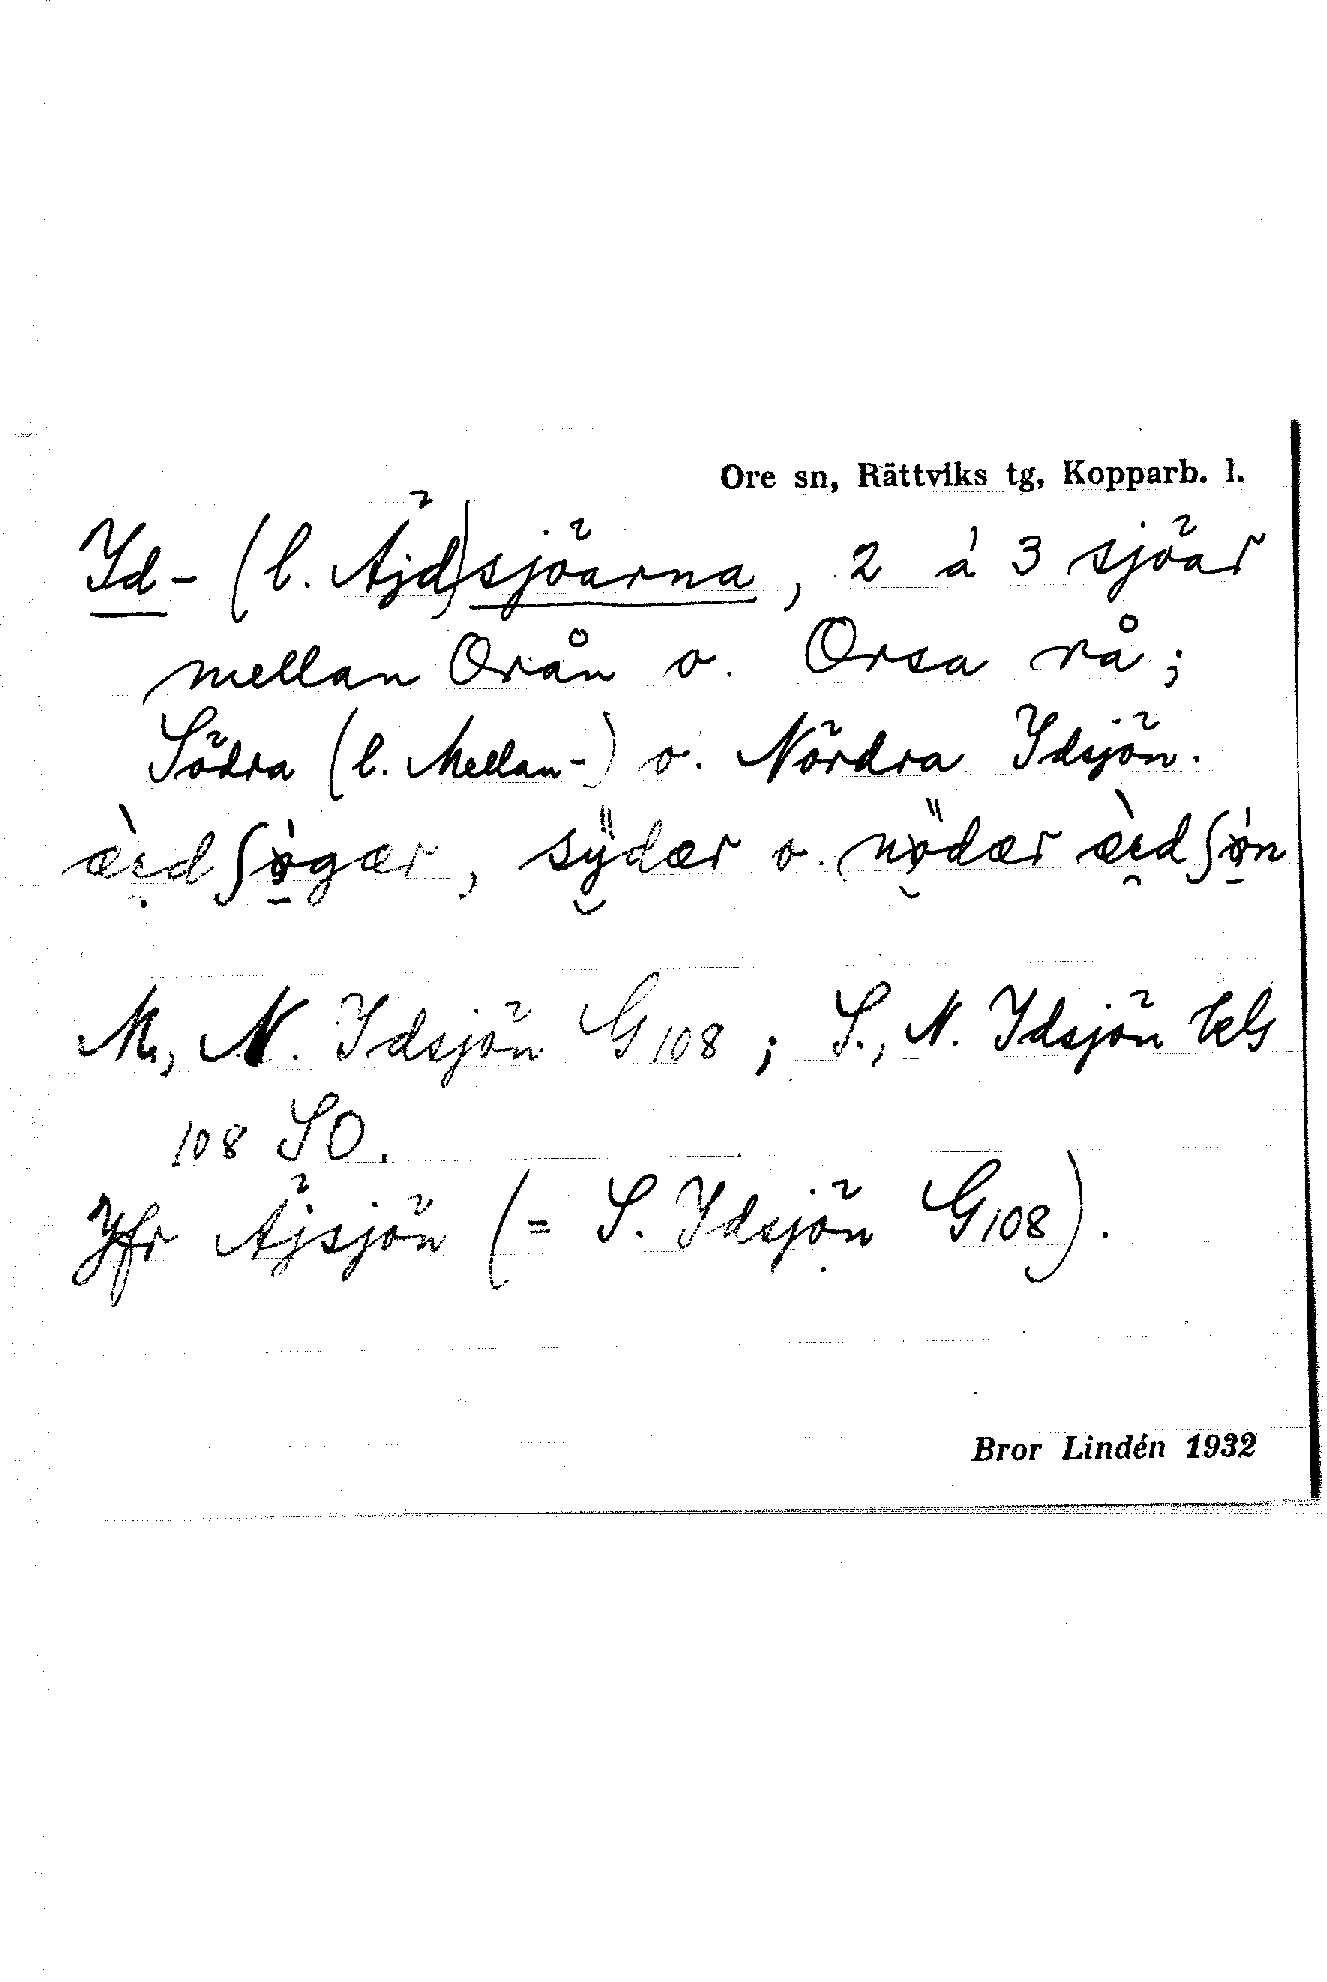 Ore sn, Rättviks tg, Kopparb. l.
Id- (l. Äjd)sjöarna, 2 à 3 sjöar
mellan Orån o. Orsa rå;
Södra (l. Mellan-) o. Nördra Idsjön.
sÿdær o.
M., N. Idsjön G108; S., N. Idsjön
108 SO.
Jfr Äjsjön (= S. Idsjön G108).
Bror Lindén 1932